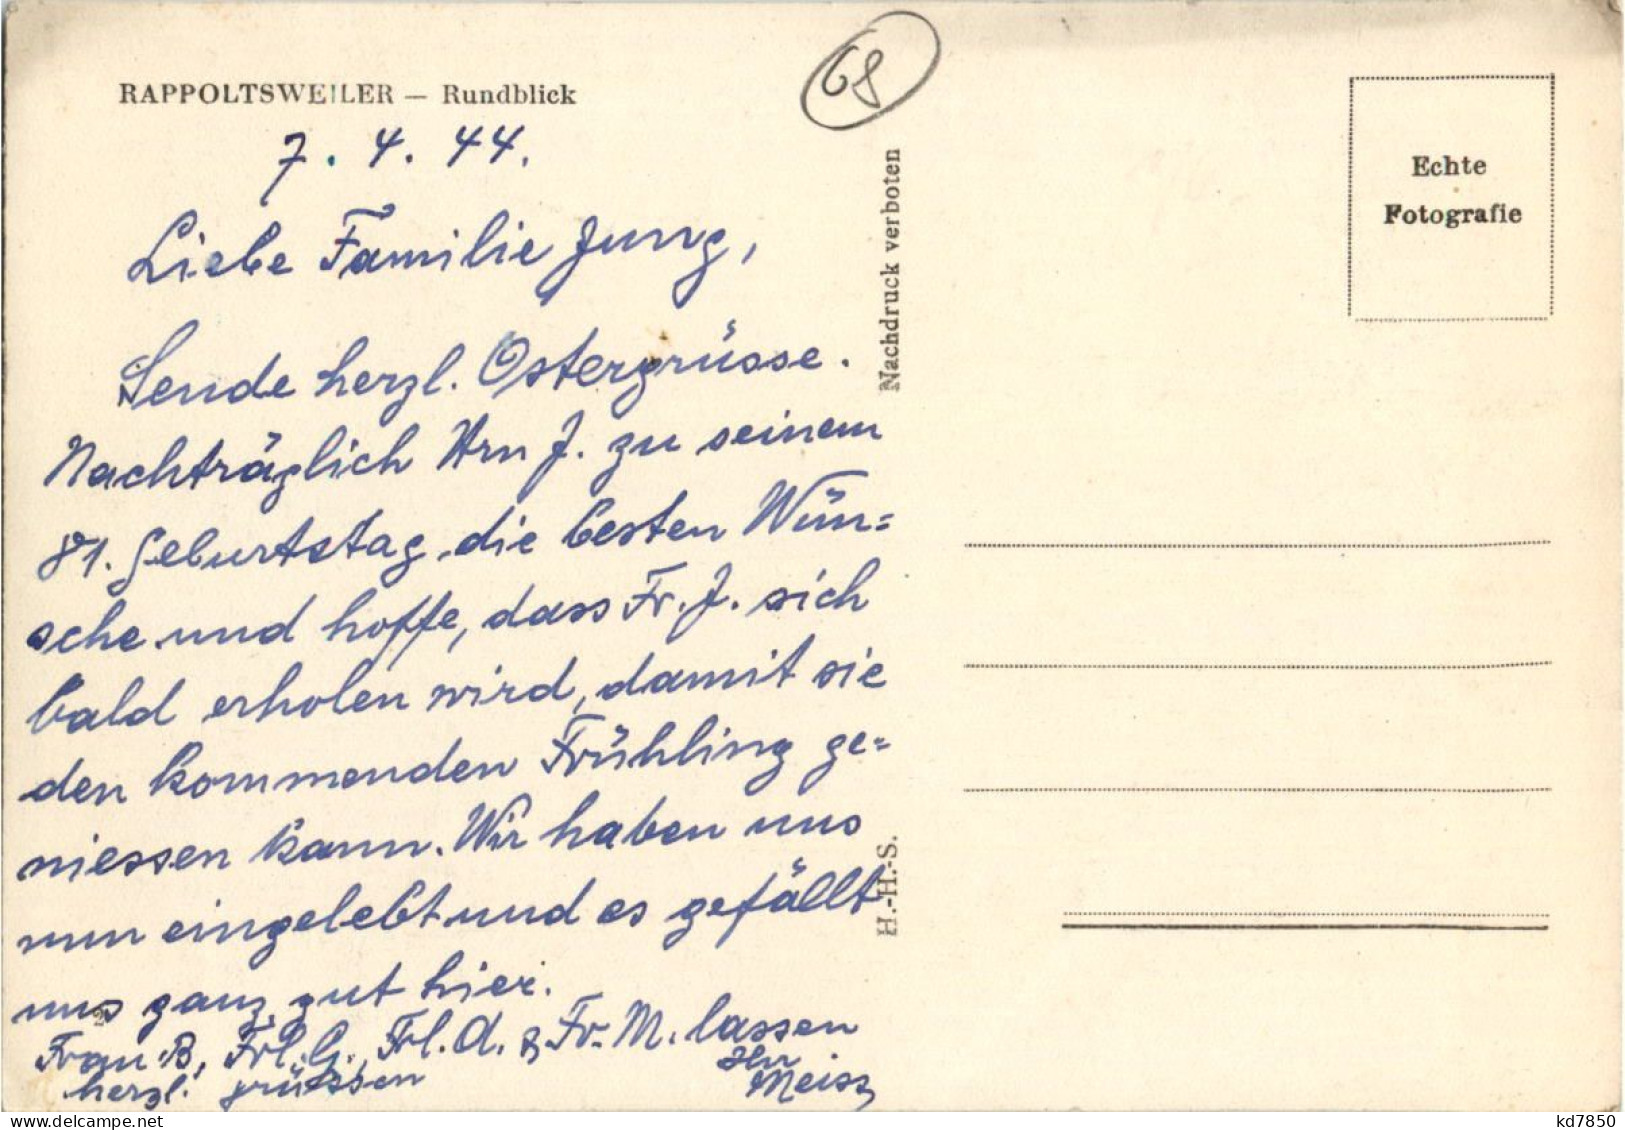 RAPPOLTSWEILER — Rundblick
68
7. 4. 44.
Liebe Familie Jung,
Sende herzl. Ostergrüsse.
Nachträglich Hrn J. zu seinem
81. Geburtstag die besten Wün=
sche und hoffe, dass Fr. J. sich
bald erholen wird, damit sie
den kommenden Frühling ge=
niessen kann. Wir haben uns
nun eingelebt und es gefällt
uns ganz gut hier.
Frau B, Frl. G., Frl. A. & Fr. M. lassen
herzl. grüssen
Ihr
Meisz
Nachdruck verboten
H.-H.-S.
Echte
Fotografie
kd7850